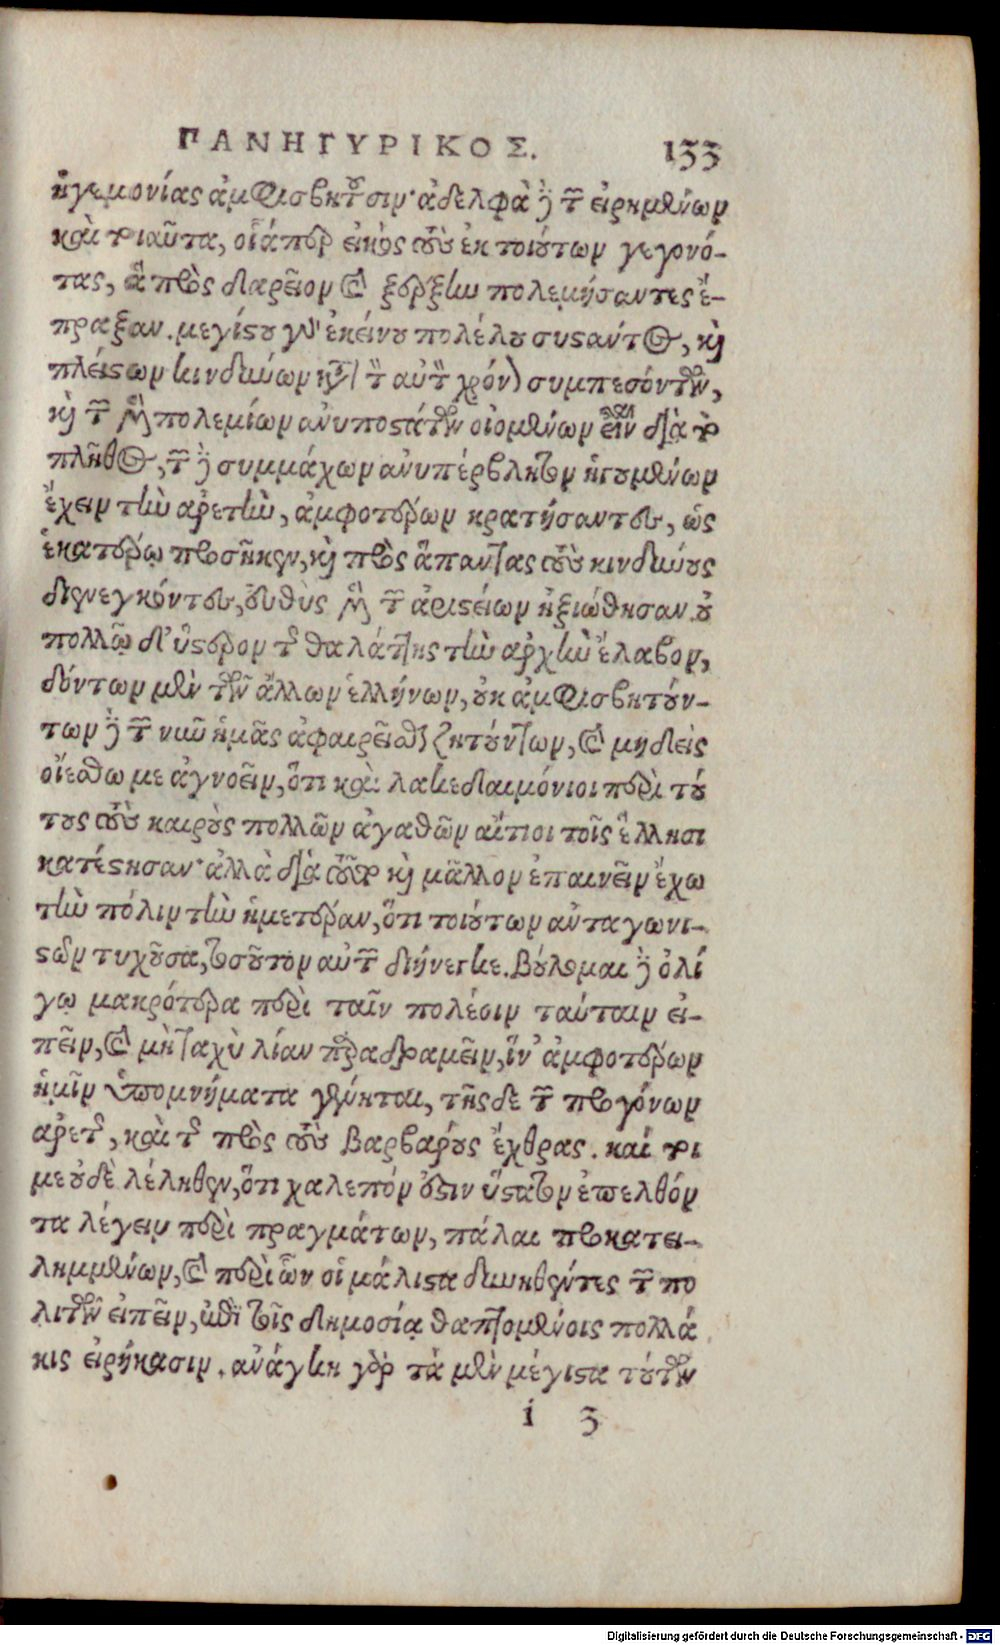 ΠΑΝΗΓΥΡΙΚΟΣ. 133
ἡγεμονίας ἀμφισβητοῦσιν· ἀδελφὰ δὲ τῶν εἰρημένων
καὶ τοιαῦτα, οἷάπερ εἰκὸς τοὺς ἐκ τοιούτων γεγονό-
τας, ἃ πρὸς δαρεῖον καὶ ξέρξην πολεμήσαντες ἔ-
πραξαν. μεγίστου γὰρ ἐκείνου πολέμου συστάντος, καὶ
πλείστων κινδύνων κατὰ τὸν αὐτὸν χρόνον συμπεσόντων,
καὶ τῶν μὲν πολεμίων ἀνυποστάτων οἰομένων εἶναι διὰ τὸ
πλῆθος, τῶν δὲ συμμάχων ἀνυπέρβλητον ἡγουμένων
ἔχειν τὴν ἀρετὴν, ἀμφοτέρων κρατήσαντες, ὡς
ἑκατέρῳ προσῆκεν, καὶ πρὸς ἅπαντας τοὺς κινδύνους
διενεγκόντες, εὐθὺς μὲν τῶν ἀριστείων ἠξιώθησαν. οὐ
πολλῷ δ' ὕστερον τῆς θαλάττης τὴν ἀρχὴν ἔλαβον,
δόντων μὲν τῶν ἄλλων ἑλλήνων, οὐκ ἀμφισβητούν-
των δὲ τῶν νῦν ἡμᾶς ἀφαιρεῖσθαι ζητούντων, καὶ μηδεὶς
οἰέσθω με ἀγνοεῖν, ὅτι καὶ λακεδαιμόνιοι περὶ τού
τους τοὺς καιροὺς πολλῶν ἀγαθῶν αἴτιοι τοῖς ἕλλησι
κατέστησαν· ἀλλὰ διὰ τοῦτο καὶ μᾶλλον ἐπαινεῖν ἔχω
τὴν πόλιν τὴν ἡμετέραν, ὅτι τοιούτων ἀνταγωνι-
στῶν τυχοῦσα, τοσοῦτον αὐτῶν διήνεγκε. Βούλομαι δὲ ὀλί
γῳ μακρότερα περὶ ταῖν πολέοιν ταύταιν εἰ-
πεῖν, καὶ μὴ ταχὺ λίαν παραδραμεῖν, ἵν' ἀμφοτέρων
ἡμῖν ὑπομνήματα γένηται, τῆς δε τῶν προγόνων
ἀρετῆς, καὶ τῆς πρὸς τοὺς βαρβάρους ἔχθρας. καί τοι
με οὐδὲ λέληθεν, ὅτι χαλεπόν ἐστιν ὕστατον ἐπελθόν
τα λέγειν περὶ πραγμάτων, πάλαι προκατει-
λημμένων, καὶ περὶ ὧν οἱ μάλιστα δυνηθέντες τῶν πο
λιτῶν εἰπεῖν, ἐπὶ τοῖς δημοσίᾳ θαπτομένοις πολλά
κις εἰρήκασιν. ἀνάγκη γὰρ τὰ μὲν μέγιστα τούτων
i 3
Digitalisierung gefördert durch die Deutsche Forschungsgemeinschaft - DFG